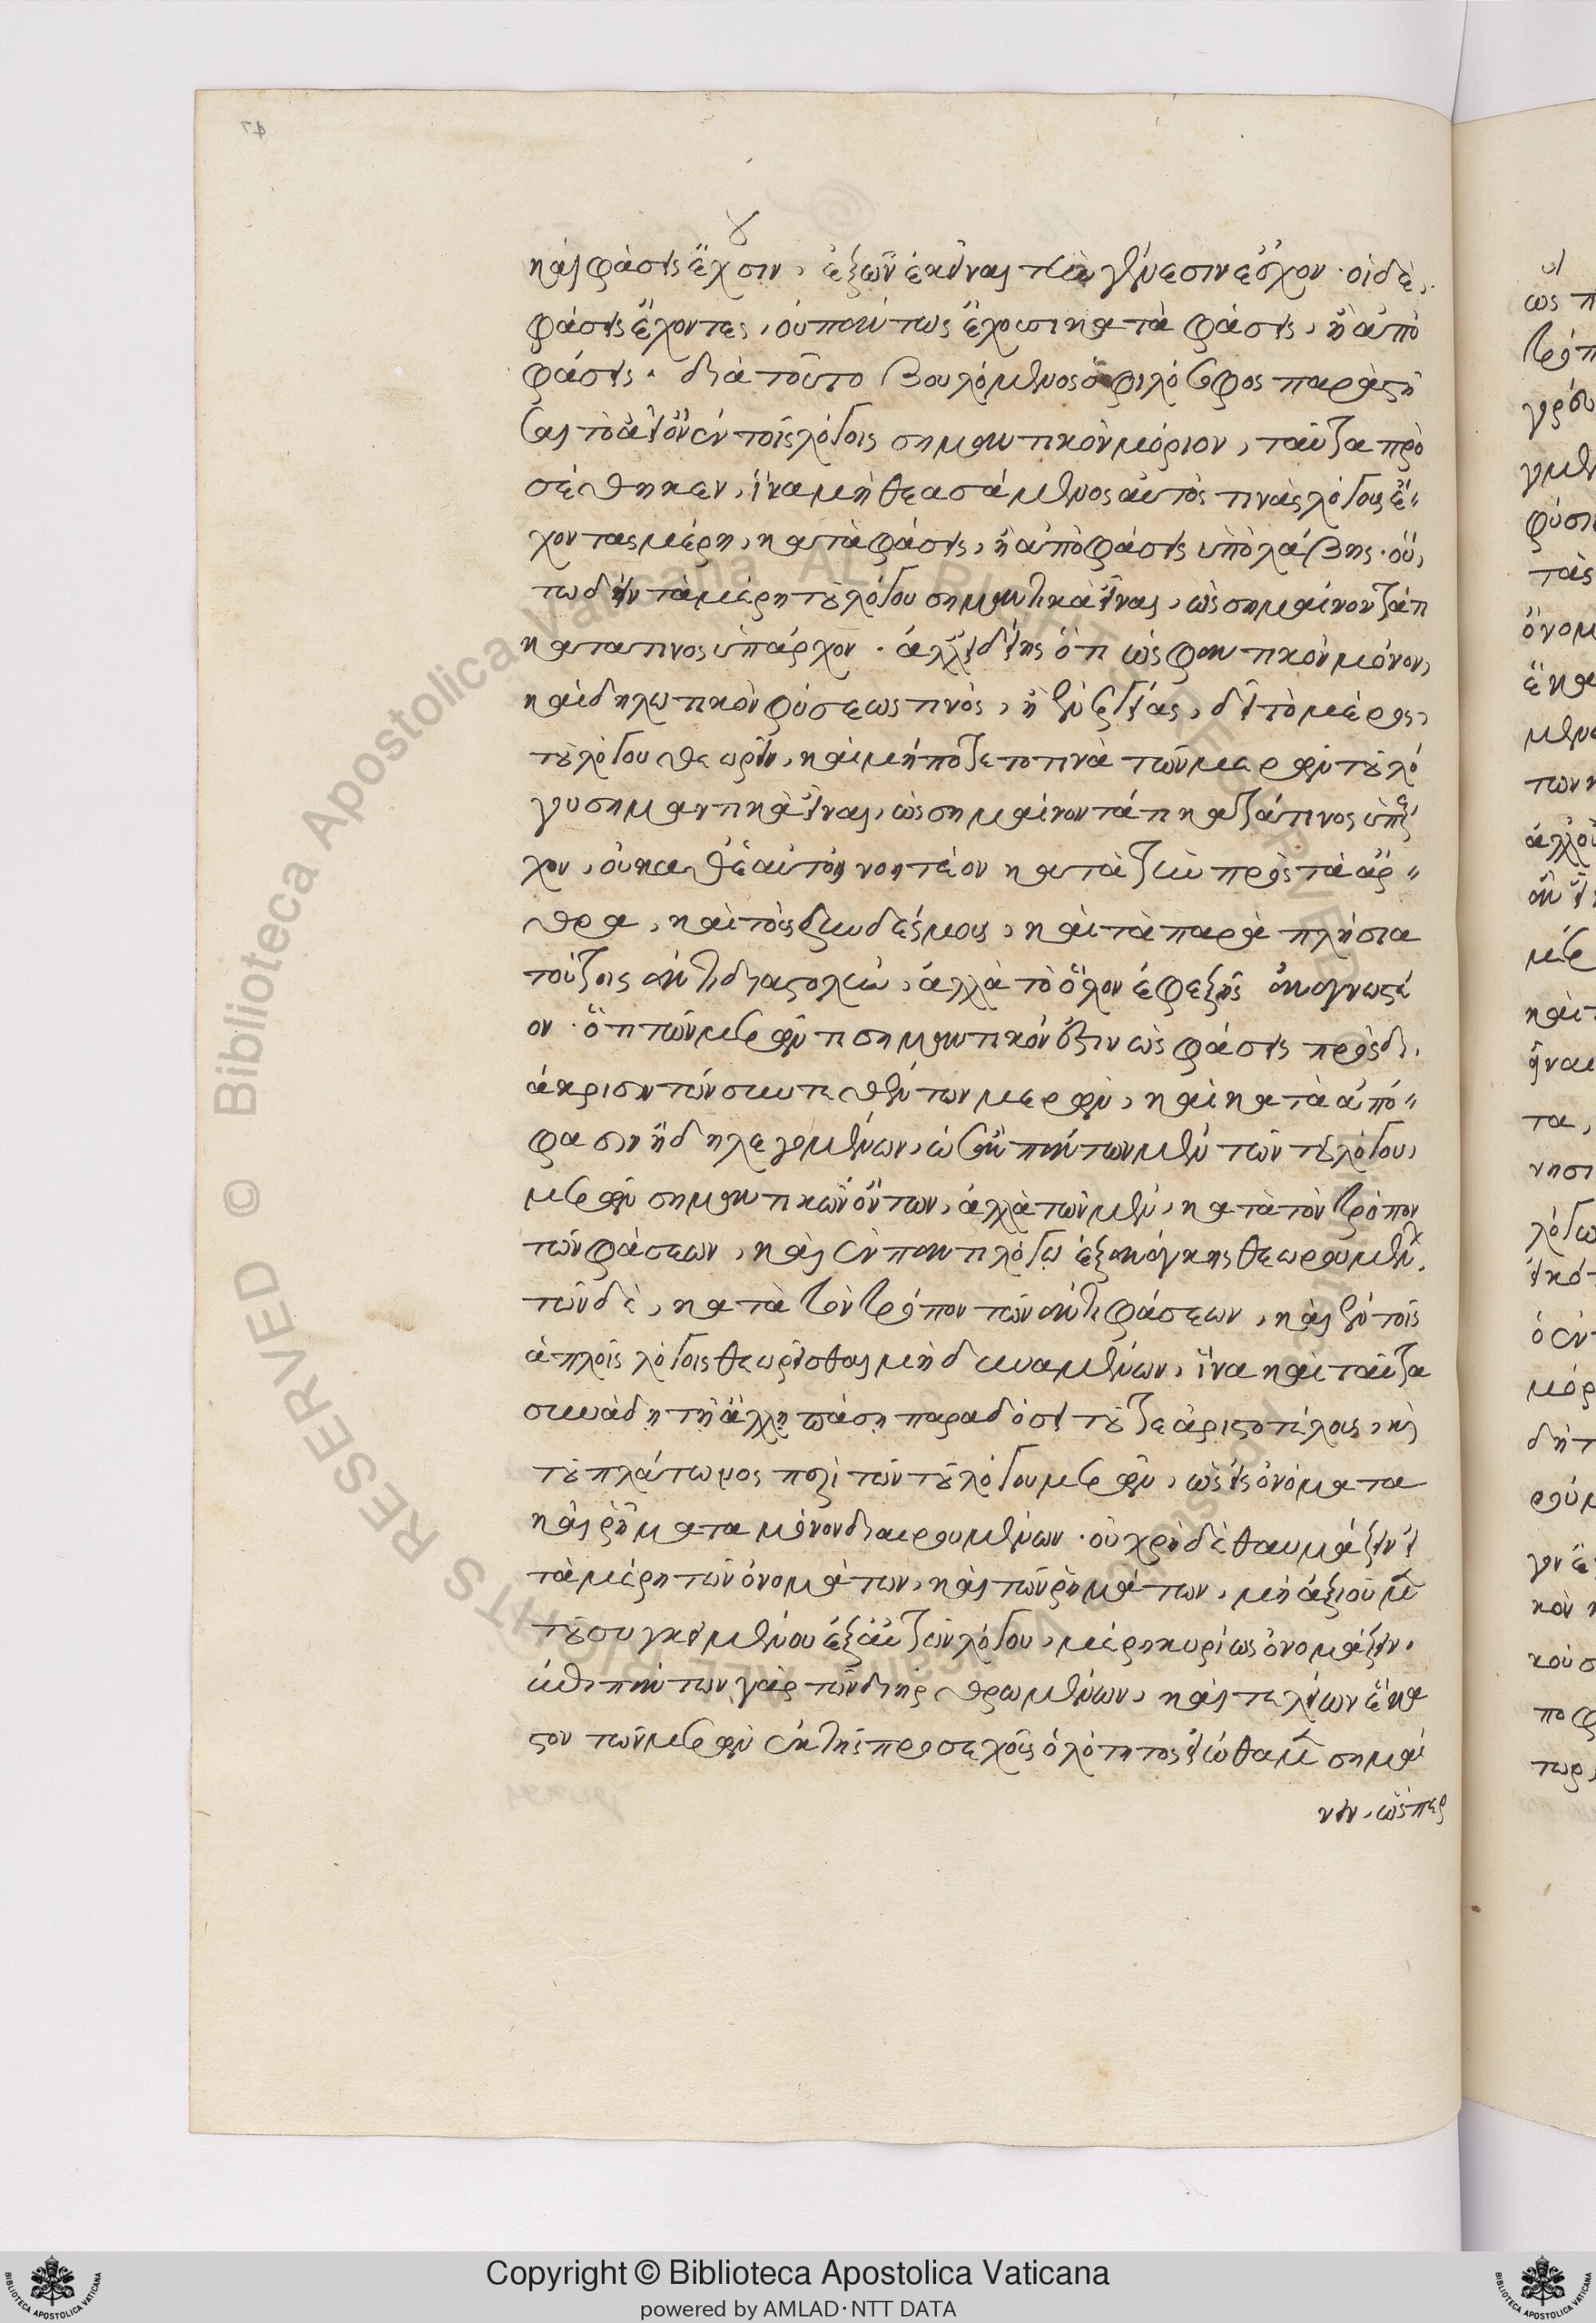 καὶ φάσεις ἔχουσιν, ἐξ ὧν ἐκεῖναι τὴν γένεσιν ἔσχον. οἱ δὲ,
φάσεις ἔχοντες, οὐ πάντως ἔχουσι κατὰ φάσεις, ἢ ἀπο
φάσεις. διὰ τοῦτο βουλόμενος ὁ φιλόσοφος παραστῆ
σαι τὸ ἀεὶ ὂν ἐν τοῖς λόγοις σημαντικὸν μόριον, ταῦτα προ
σέθηκεν, ἵνα μὴ θεασάμενος αὐτὸς τινὰς λόγους ἔ
χοντας μέρη, καταφάσεις, ἢ ἀποφάσεις ὑπολάβης. οὕ
τω δεῖν τὰ μέρη τοῦ λόγου σημαντικὰ εἶναι, ὡς σημαίνοντά τι
κατα τινος ὑπάρχον. ἀλλ' εἰδείης ὅτι ὡς φαντικὸν μόνον,
καὶ δηλωτικὸν φύσεώς τινος, ἢ ἐνεργείας, δεῖ τὸ μέρος,
τοῦ λόγου θεωρεῖν, καὶ μήποτε το τινὰ τῶν μερῶν τοῦ λό
γου σημαντικὰ εἶναι, ὡς σημαίνοντά τι κατά τινος ὑπάρ
χον, οὐ καθ' ἑαυτὸ νοητέον κατὰ τὴν πρὸς τὰ ἄρ
θρα, καὶ τοὺς συνδέσμους, καὶ τὰ παραπλήσια
τούτοις ἀντιδιαστολὴν, ἀλλὰ τὸ ὅλον ἐφεξῆς ἀναγνωστέ
ον. ὅτι τῶν μερῶν τι σημαντικόν ἐστιν ὡς φάσις πρὸς δι
άκρισιν τῶν συντεθέντων μερῶν, καὶ κατὰ ἀπό
φασιν ἤδη λεγομένων, ὡσὰν πάντων μὲν τῶν τοῦ λόγου,
μερῶν σημαντικῶν ὄντων, ἀλλὰ τῶν μὲν, κατὰ τὸν τρόπον
τῶν φάσεων, καὶ ἐν παντὶ λόγῳ ἐξ ἀνάγκης θεωρουμένων.
τῶν δὲ, κατὰ τὸν τρόπον τῶν ἀντιφάσεων, καὶ ἐν τοῖς
ἁπλοῖς λόγοις θεωρεῖσθαι μὴ δυναμένων, ἵνα καὶ ταῦτα
συνάδῃ τῇ ἄλλῃ πάσῃ παραδόσει τοῦ τε ἀριστοτέλους, καὶ
τοῦ πλάτωνος περὶ τῶν τοῦ λόγου μερῶν, ὡς εἰς ὀνόματα
καὶ ῥήματα μόνον διαιρουμένων. οὐ χρὴ δὲ θαυμάζειν εἰ
τὰ μέρη τῶν ὀνομάτων, καὶ τῶν ῥημάτων, μὴ ἀξιοῦμεν
τοῦ συγκειμένου ἐξ αὐτῶν λόγου, μέρη κυρίως ὀνομάζειν.
ἐπὶ πάντων γὰρ τῶν διηρθρωμένων, καὶ τελείων ἕκα
στον τῶν μερῶν ἐκ τῆς προσεχοῦς ὁλότητος εἰώθαμεν σημαί
νειν, ὥσπερ